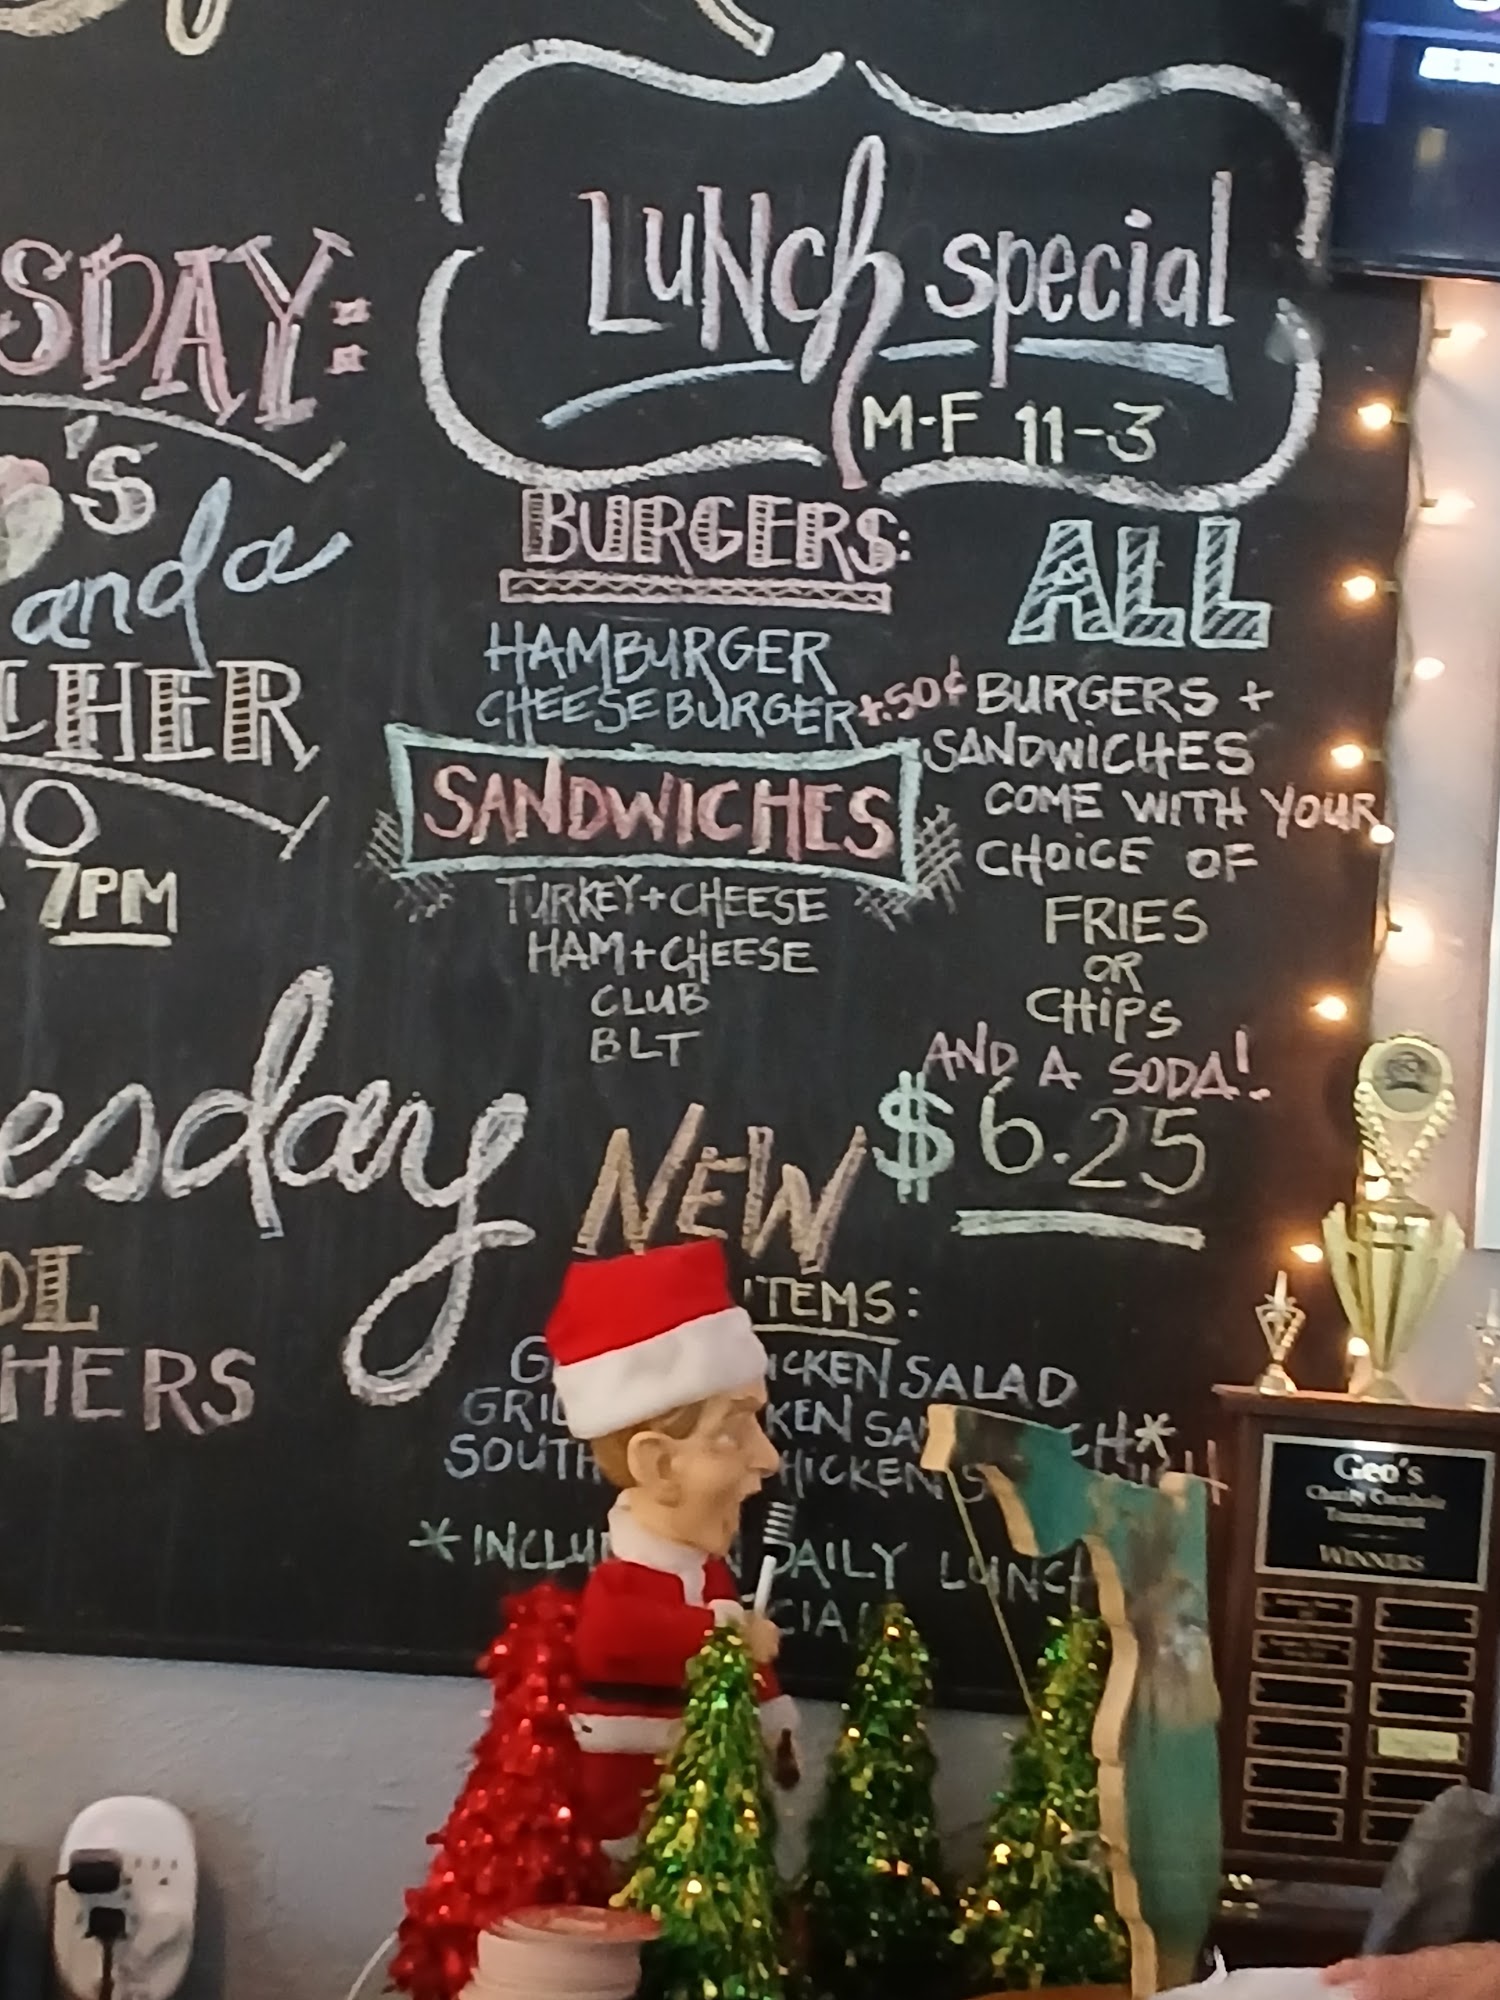 SDAY:
's
and a
CHER
7PM
esday
OL
HERS
Lunch special
M-F 11-3
BURGERS:
HAMBURGER
CHEESEBURGER +.50¢
SANDWICHES
TURKEY+CHEESE
HAM+CHEESE
CLUB
BLT
ALL
BURGERS +
SANDWICHES
COME WITH YOUR
CHOICE OF
FRIES
OR
CHIPS
AND A SODA!
$6.25
NEW
ITEMS:
G ICKEN SALAD
GRIL KEN SA CH*
SOUTH HICKEN S
*INCLU N DAILY LUNCH
CIAL
Geo's
Charity Cornhole
Tournament
WINNERS